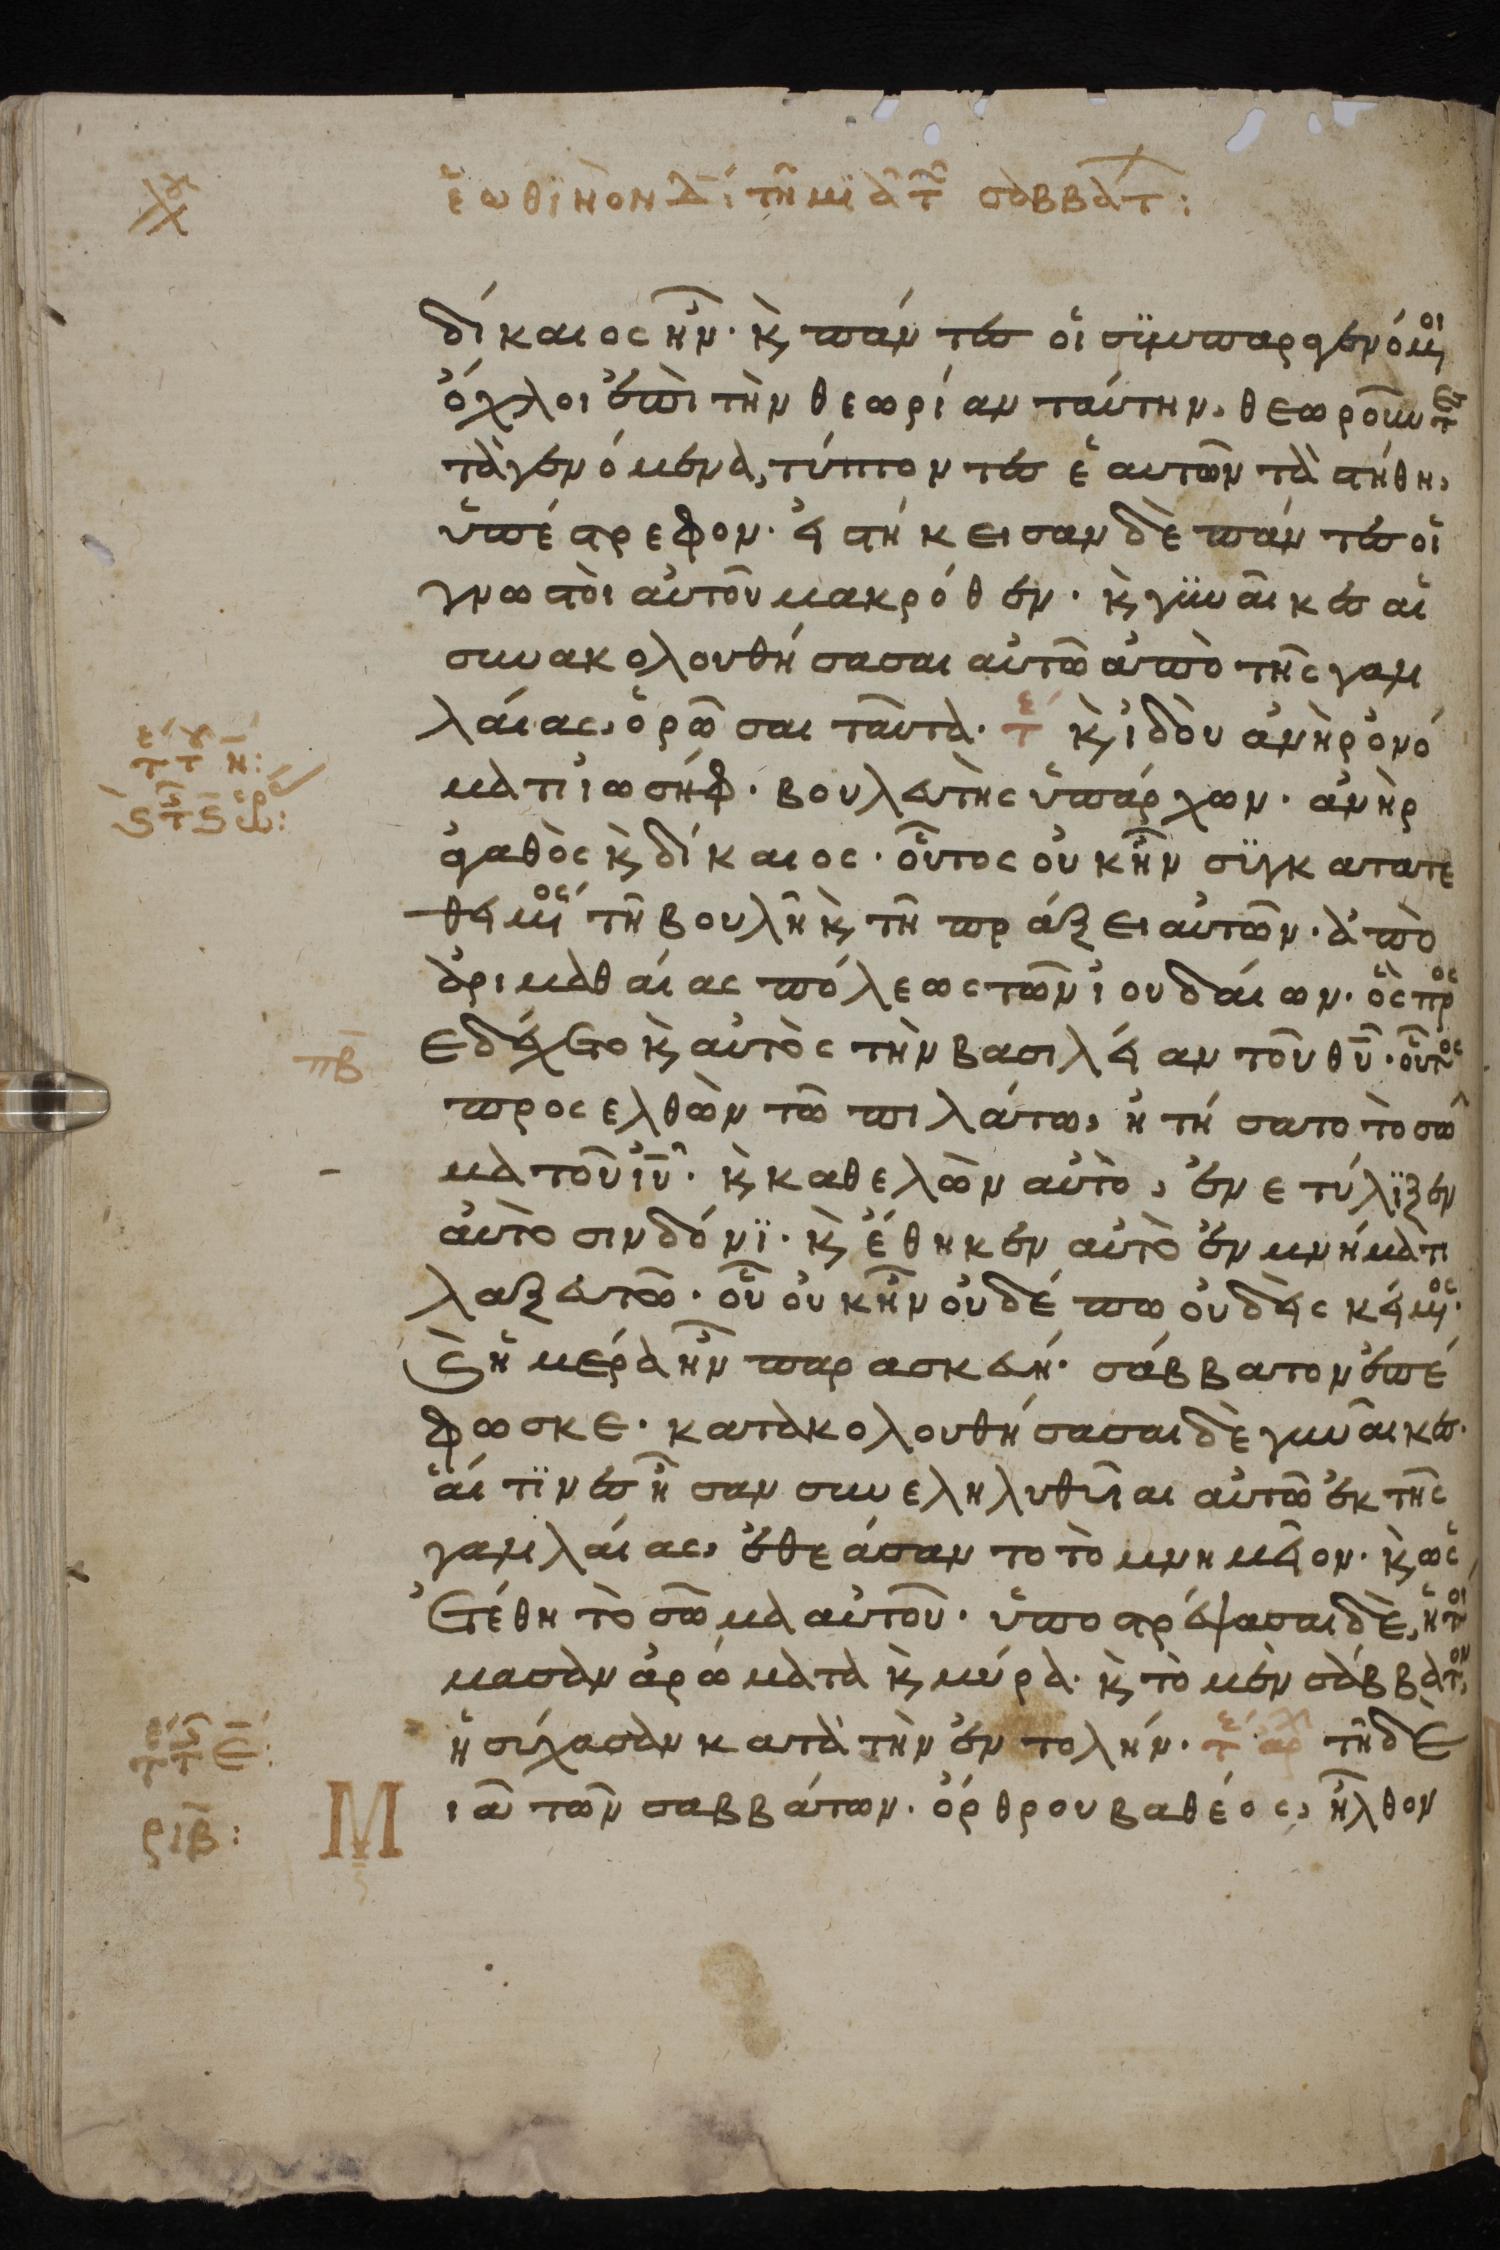 ἑωθϊνὸν Δ΄: τῆ μϊᾶ τ σαββάτ:
δίκαιος ἦν· κ πάντες οἱ σϋμπαραγενόμοι
ὄχλοι ἐπὶ τὴν θεωρίαν ταύτην, θεωροῦντες
τὰ γενόμενα, τύπτοντες ἑαυτῶν τὰ στήθη,
ὑπέστρεφον· εἱστήκεισαν δὲ πάντες οἱ
γνωστοὶ αὐτοῦ μακρόθεν· κ γϋναῖκες αἱ
συνακολουθήσασαι αὐτῶ ἀπὸ τῆς γαλι
λαίας, ὁρῶσαι ταῦτα· τέ κ ἰδοὺ ἀνὴρ ὀνό
ματι ἰωσήφ· βουλευτὴς ὑπάρχων· ἀνὴρ
ἀγαθὸς κ δίκαιος· οὗτος οὐκ ἦν σϋγκατατε
θειμος τῆ βουλῆ κ τῆ πράξει αὐτῶν· ἀπὸ
ἀριμαθαίας πόλεως τῶν ἰουδαίων· ὃς προς
εδέχετο κ αὐτὸς τὴν βασιλείαν τοῦ θυ· οὗτος
προσελθὼν τῶ πιλάτω, ἠτήσατο τὸ σῶ
μα τοῦ ἰυ· κ καθελὼν αὐτὸ, ἐνετύλϊξεν
αὐτὸ σινδόνϊ· κ ἔθηκεν αὐτὸ ἐν μνήματι
λαξευτῶ· οὗ οὐκ ἦν οὐδέπω οὐδεὶς κείμος·
κ ἡμέρα ἦν παρασκευή· σάββατον ἐπέ
φωσκε· κατακολουθήσασαι δὲ γυναῖκες·
αἵτϊνες ἦσαν συνεληλυθυῖαι αὐτῶ ἐκ τῆς
γαλιλαίας, ἐθεάσαντο τὸ μνημεῖον· κ ὡς
ἐτέθη τὸ σῶμα αὐτοῦ· ὑποστρέψασαι δὲ, ἡτοί
μασαν ἀρώματα κ μύρα· κ τὸ μὲν σάββατον,
ἡσύχασαν κατὰ τὴν ἐντολήν· τέ ἀρχ τῆ δὲ
Μιᾶ τῶν σαββάτων· ὄρθρου βαθέος, ἦλθον
πβ
ριβ: